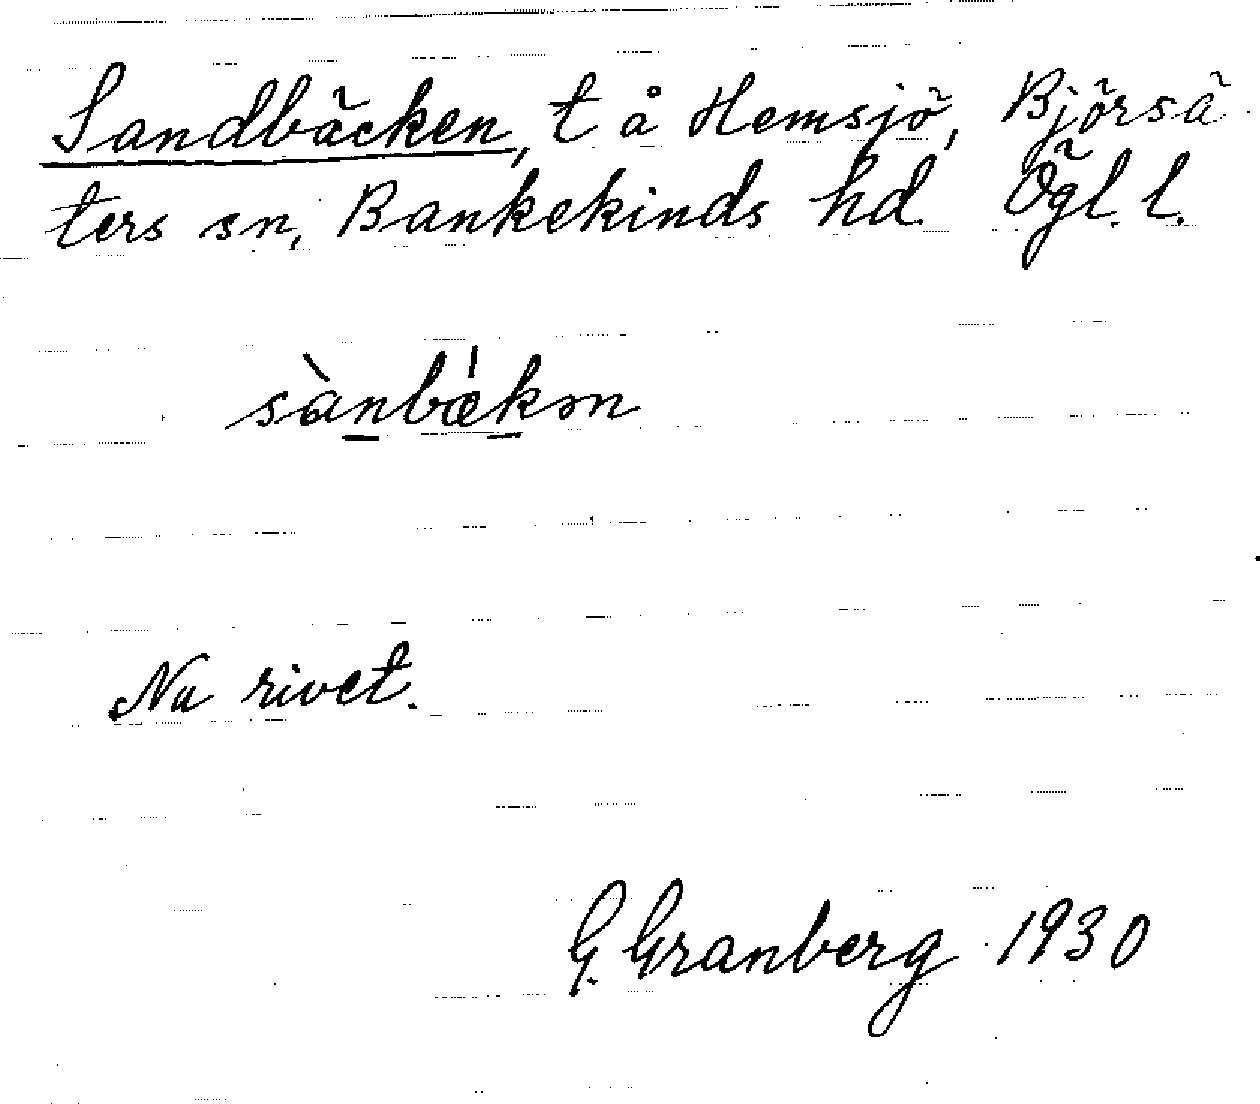 Sandbäcken, t å Hemsjö, Björsä-
ters sn, Bankekinds hd. Ögl. l.
sàn̲bæ̍k̲ən
Nu rivet.
G. Granberg 1930